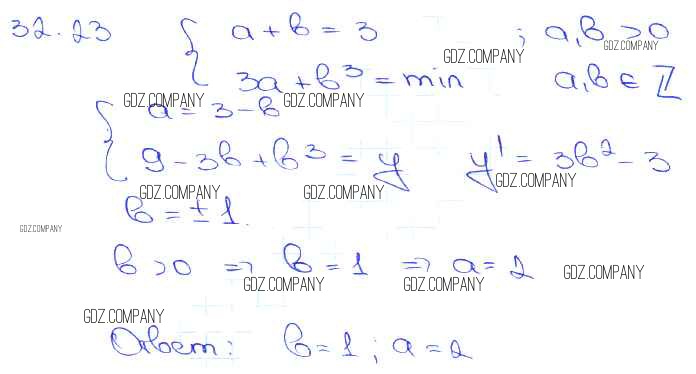 32.23 { a + b = 3 ; a, b > 0
GDZ.COMPANY GDZ.COMPANY
3a + b³ = min a, b ∈ ℤ
GDZ.COMPANY GDZ.COMPANY
{ a = 3 - b
9 - 3b + b³ = y y' = 3b² - 3
GDZ.COMPANY
GDZ.COMPANY GDZ.COMPANY
b = ± 1.
GDZ.COMPANY
b > 0 ⇒ b = 1 ⇒ a = 2 GDZ.COMPANY
GDZ.COMPANY GDZ.COMPANY
GDZ.COMPANY
Ответ: b = 1 ; a = 2